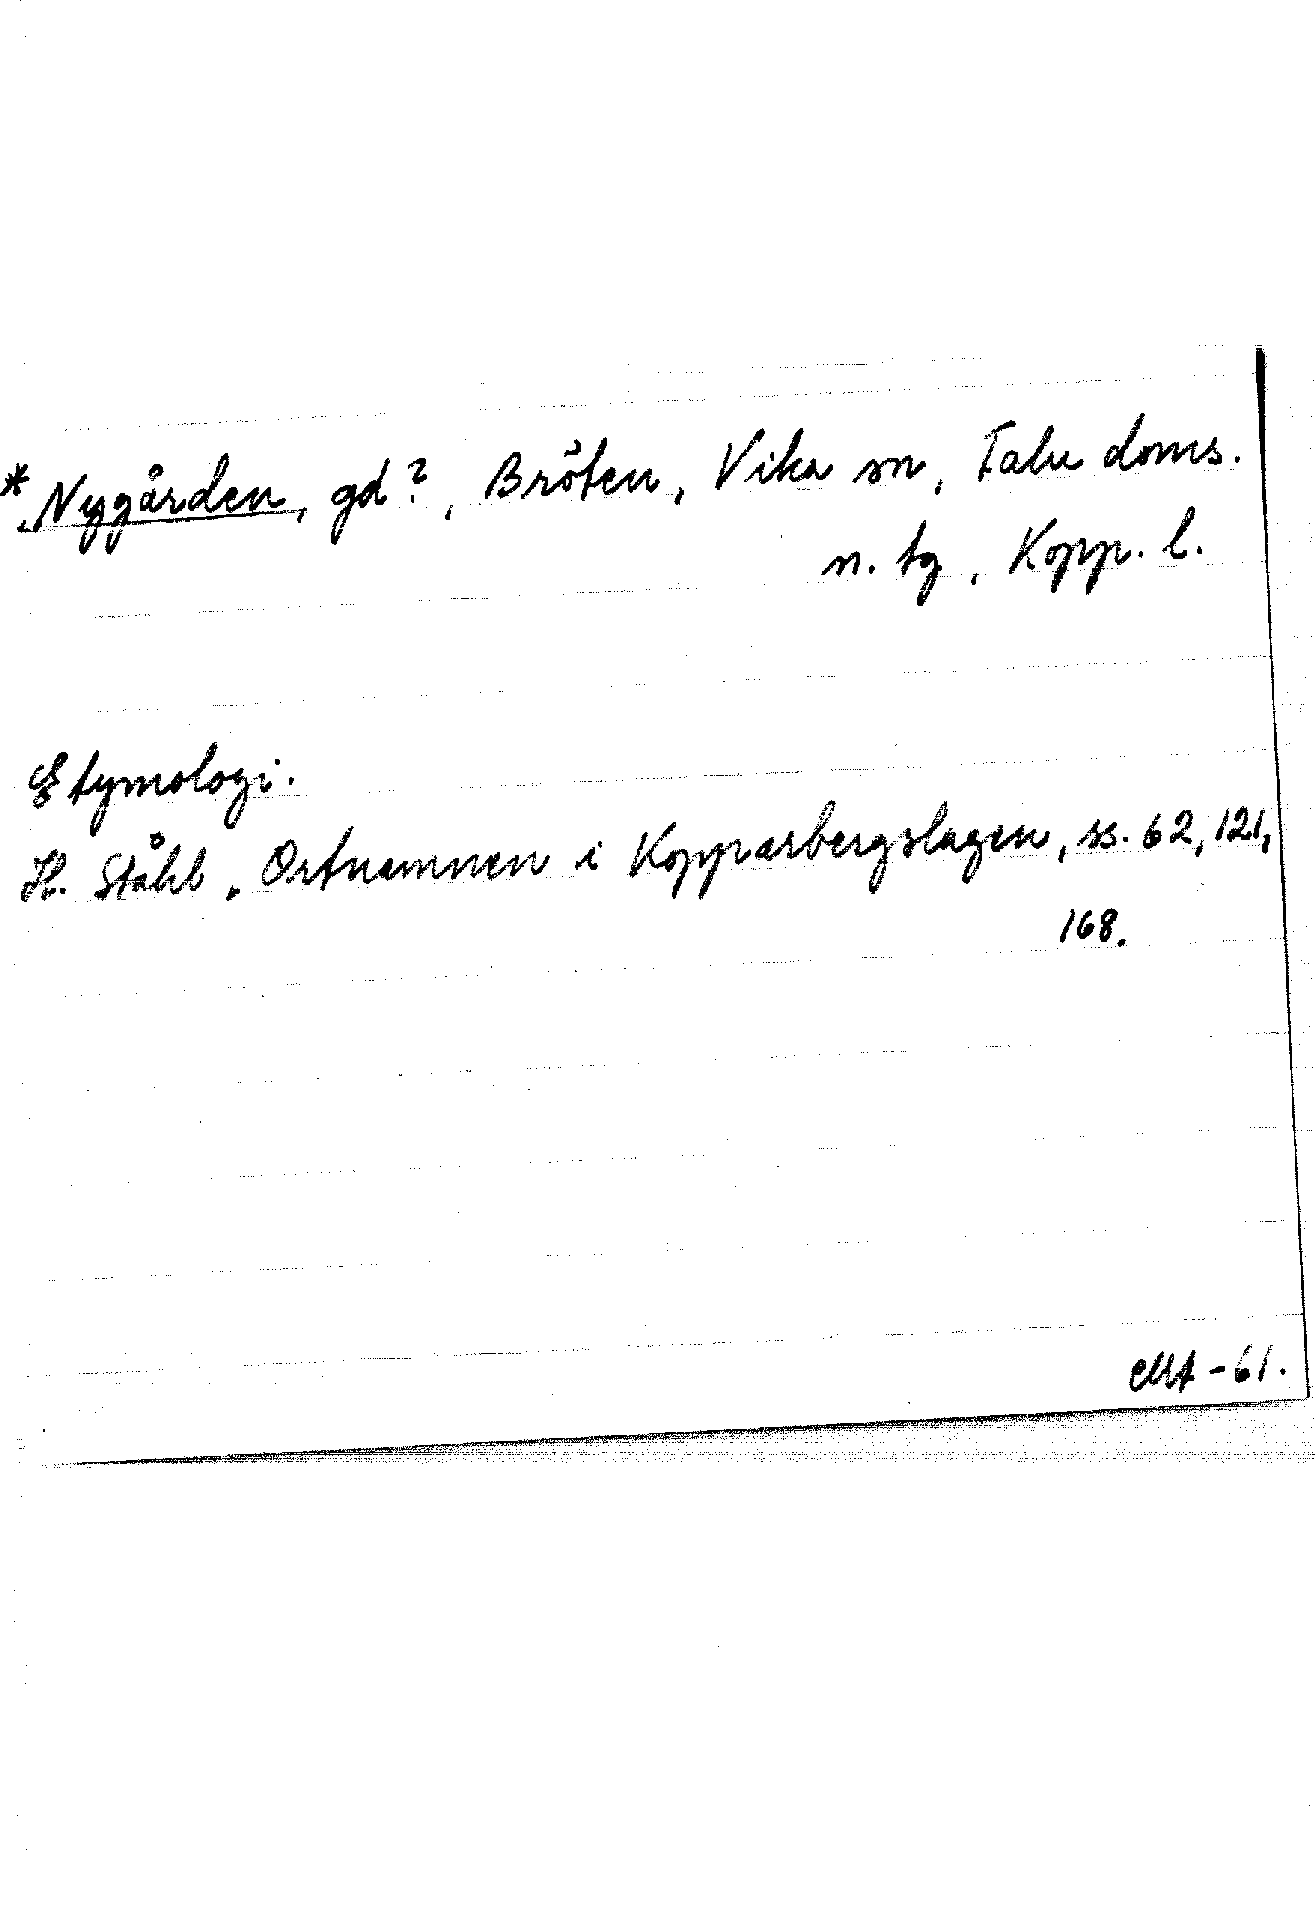 * Nygården, gd?, Bröten, Vika sn, Falu doms.
n. tg, Kopp. l.
Etymologi.
H. Ståhl, Ortnamnen i Kopparbergslagen, ss. 62, 121,
168.
-61.